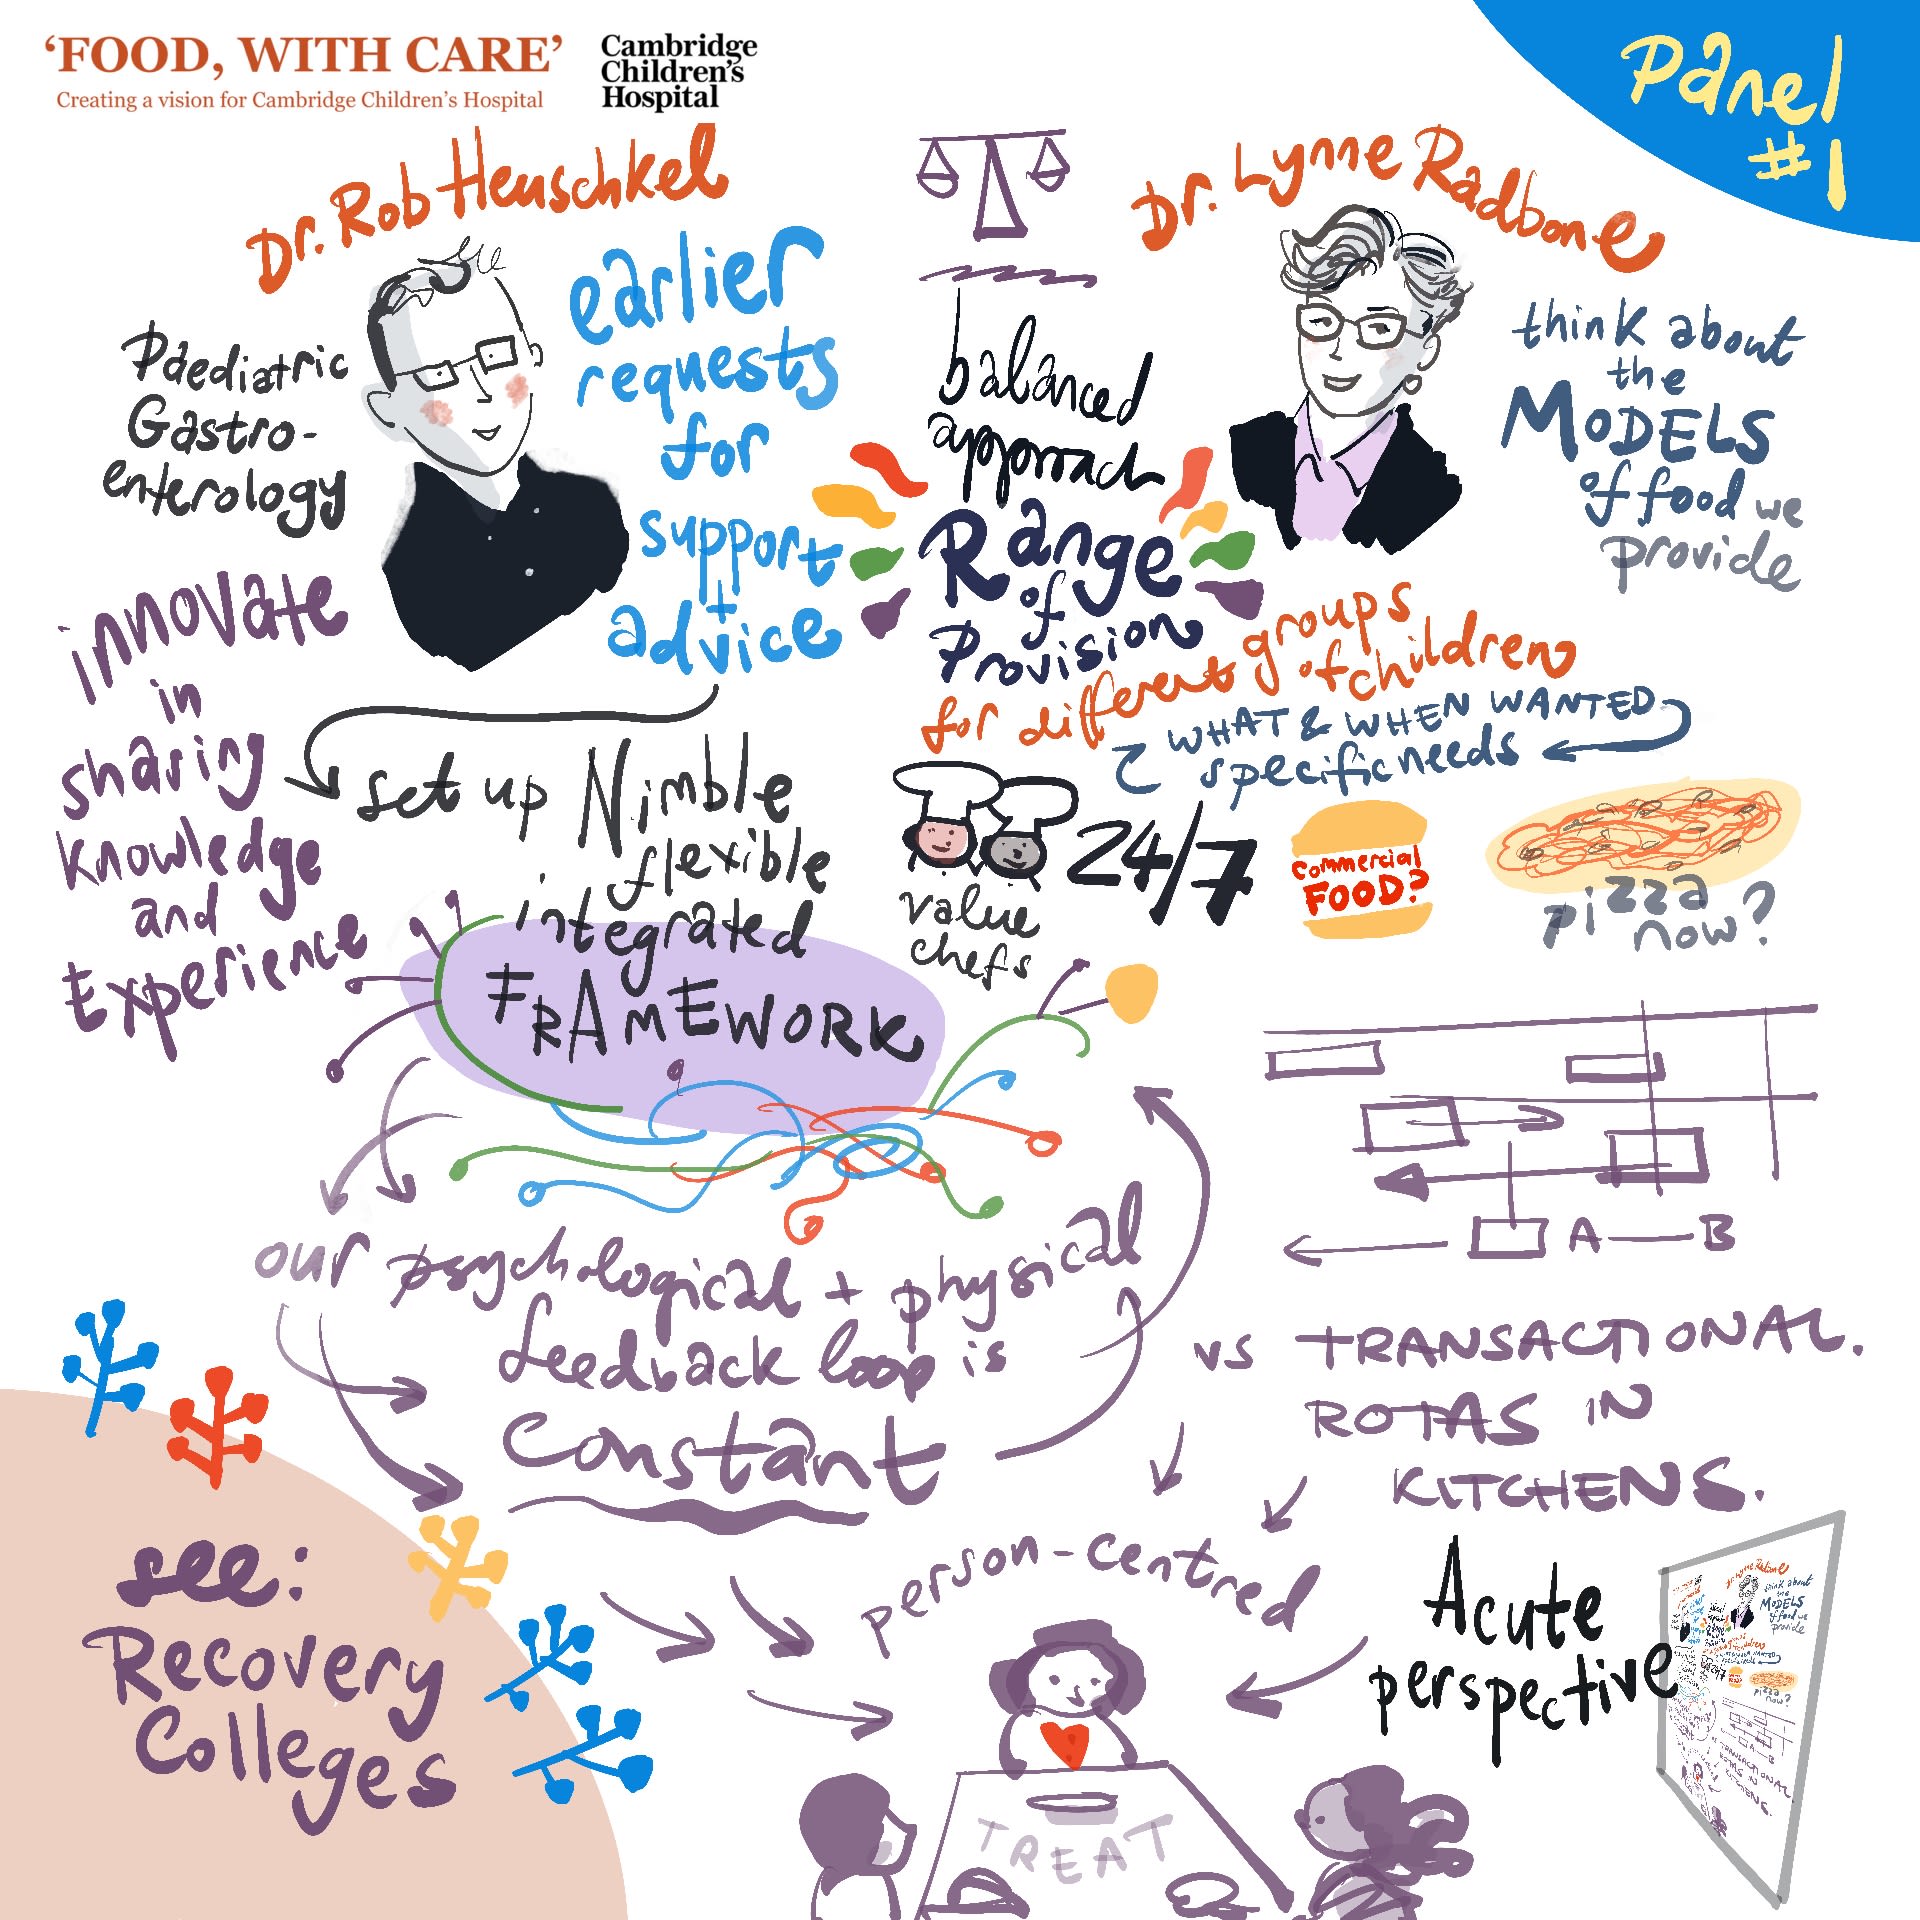 ‘FOOD, WITH CARE’
Creating a vision for Cambridge Children's Hospital
Cambridge
Children's
Hospital
Panel
#1
Dr. Rob Heuschkel
Paediatric
Gastro-
enterology
earlier
requests
for
support
+
advice
innovate
in
sharing
knowledge
and
Experience
set up Nimble
flexible
integrated
FRAMEWORK
balanced
approach
Range
of
Provision
for different groups
of children
WHAT & WHEN WANTED
specific needs
Dr. Lynne Radbone
think about
the
MODELS
of food we
provide
value
chefs
24/7
commercial
FOOD?
pizza
now?
A — B
our psychological + physical
feedback loop is
Constant
vs TRANSACTIONAL.
ROTAS IN
KITCHENS.
see:
Recovery
Colleges
person-centred
TREAT
Acute
perspective
Dr. Lynne Radbone
think about
the
MODELS
of food we
provide
pizza
now?
TRANSACTIONAL.
ROTAS IN
KITCHENS.